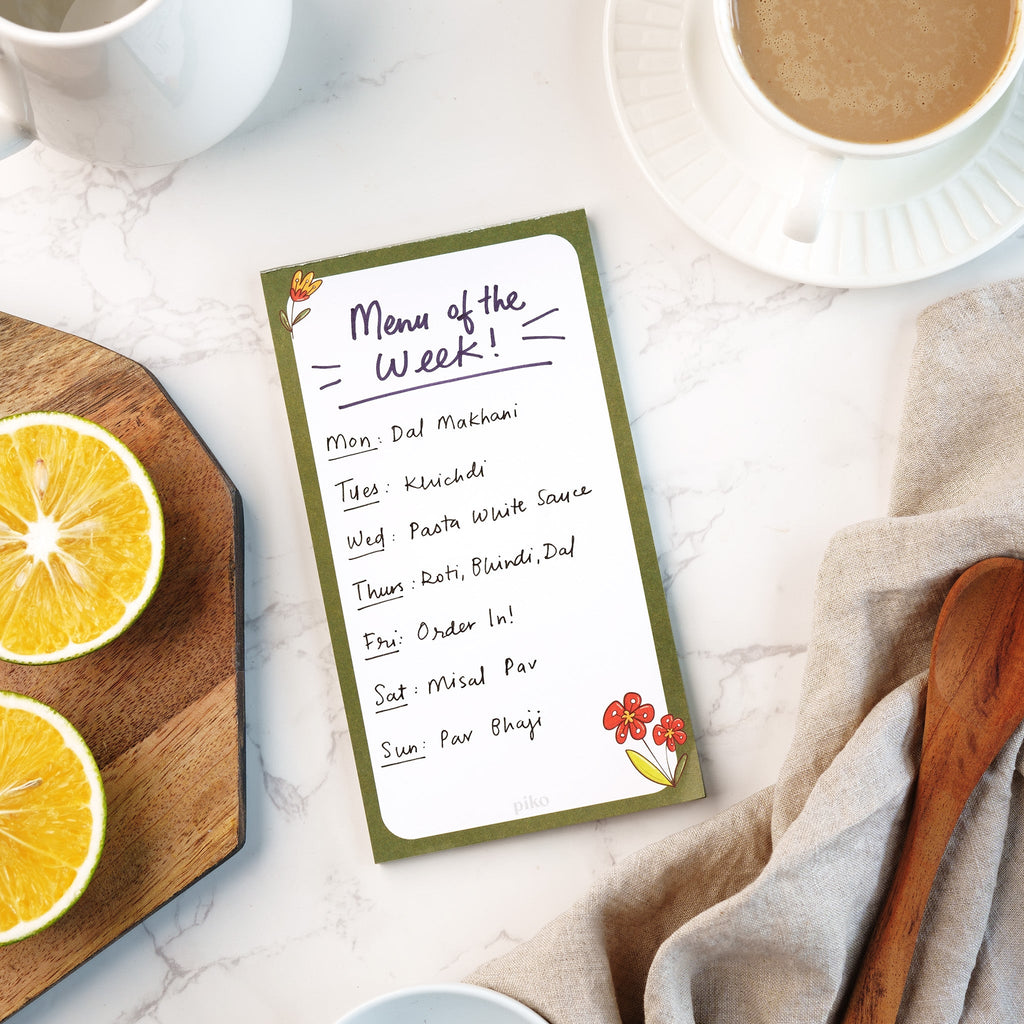 Menu of the
Week!
Mon: Dal Makhani
Tues: Khichdi
Wed: Pasta White Sauce
Thurs: Roti, Bhindi, Dal
Fri: Order In!
Sat: Misal Pav
Sun: Pav Bhaji
piko